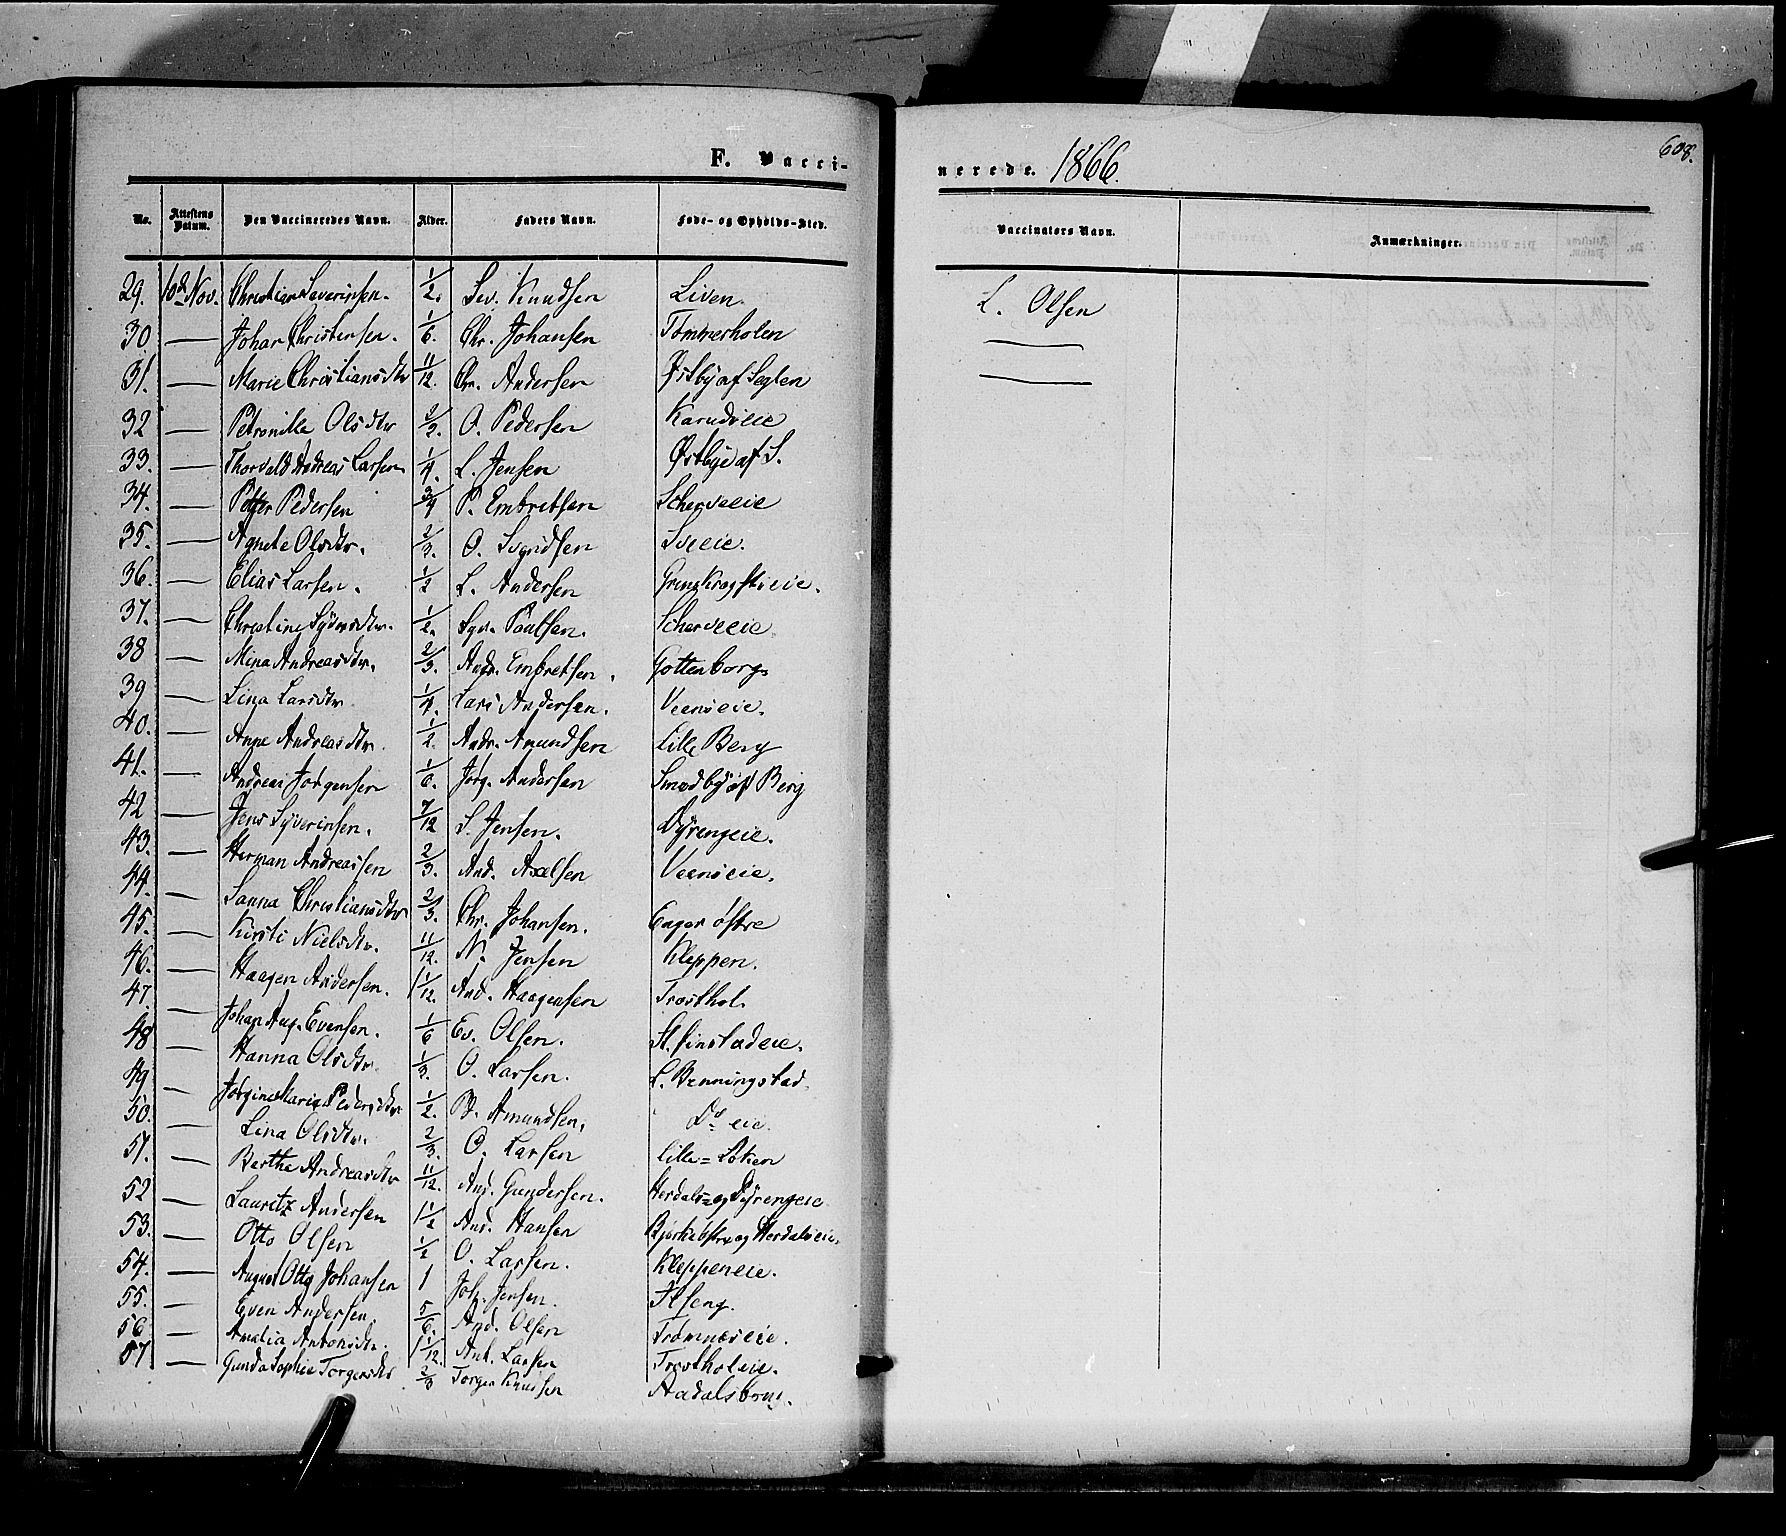 F. Vacci-
nerede. 1866.
608.
No. Attestens Datum. Den Vaccineredes Navn. Alder. Faders Navn. Føde- og Opholds-Sted.
Vaccinators Navn. Anmærkninger.
29. 10d Nov. Christian Severinsen. 1/2. Sev. Knudsen Liven L. Olsen
30 — Johan Christensen. 1/6. Chr. Johansen Tømmerholen —
31. — Marie Christiansdtr 11/12. Chr. Andersen Østby af Seglen —
32 — Petronille Olsdtr O. Pedersen
33. — Thorvald Andreas Larsen 1/4. L. Jensen Østbye af S.
34. — Petter Pedersen 3/4 P. Embretsen Scherveeie
35. — Agnete Olsdtr. 2/3. O. Sveeie.
36. — Elias Larsen. 1/2 L. Andersen
37. — Christine 1/2. Syv. Paulsen. Scherveeie
38 — Mina Andreasdtr. 2/3. Andr. Embretsen. Gottenborg
39 — Lina Larsdtr 1/4. Lars Andersen. Veenseie.
40. — Anne Andreasdtr. 1/2. Andr. Amundsen Lille Berg
41. — Andreas Jørgensen 1/6. Jørg. Andersen Smedby af Berg
42 — Jens Syverinsen. 7/12 S. Jensen. Dyrengeie.
43. — Herman Andreassen 2/3. And. Axelsen Veenseie.
44. — Sanna Christiansdtr 2/3. Chr. Johansen. Enger østre
45. — Kirsti Nielsdtr. 11/12. N. Jensen Kleppen.
46. — Haagen Andersen. 1 1/12. And. Haagensen Trosthol.
47. — Johan Aug. Evensen. 1/6 Ev. Olsen. St. Finstadeie.
48 — Hanna Olsdtr. 1/3. O. Larsen. L. Benningstad.
49 — Jørgine Marie Pedersdtr 1/2. P. Amundsen. Do eie.
50. — Lina Olsdtr. 2/3. O. Larsen Lille=Løken
51. — Berthe Andreasdtr 11/12. And. Gundersen. Herdals= og Dyrengeie
52 — Lauritz Andersen 1 1/2 And. Hansen Bjørke østre og Herdalseie.
53. — Otto Olsen 1/2 O. Larsen. Kleppeneie.
54. — August Otto Johansen 1 Joh. Jensen. Ilseng.
55. — Even Andersen. 5/6. And. Olsen Trømnæseie.
56 — Amalia Antonsdtr. 1 1/12. Ant. Larsen Trostholeie.
57 — Gunda Sophie Torgersdtr 2/3 Torger Knudsen Aadalsbrug.